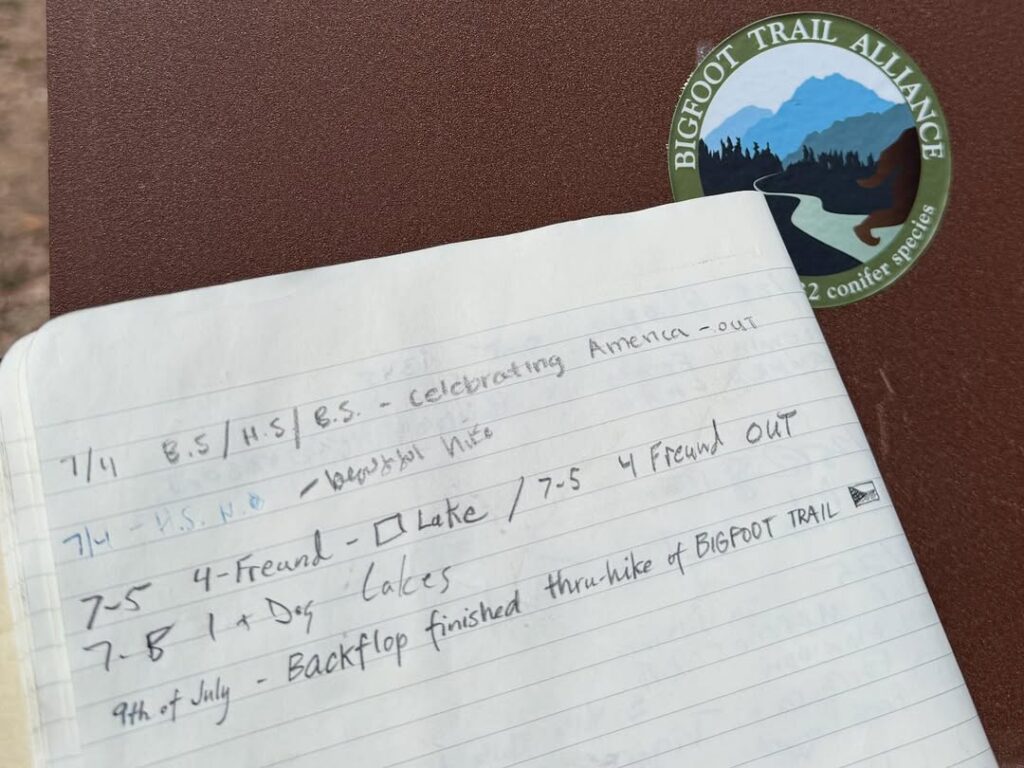 BIGFOOT TRAIL ALLIANCE
2 conifer species
7/4 B.S / H.S / B.S. - celebrating America - out
7/4 - H.S. N.B - beautiful hike
7-5 4-Freund - Lake / 7-5 4 Freund OUT
7-8 1 + Dog Lakes
9th of July - Backflop finished thru-hike of BIGFOOT TRAIL